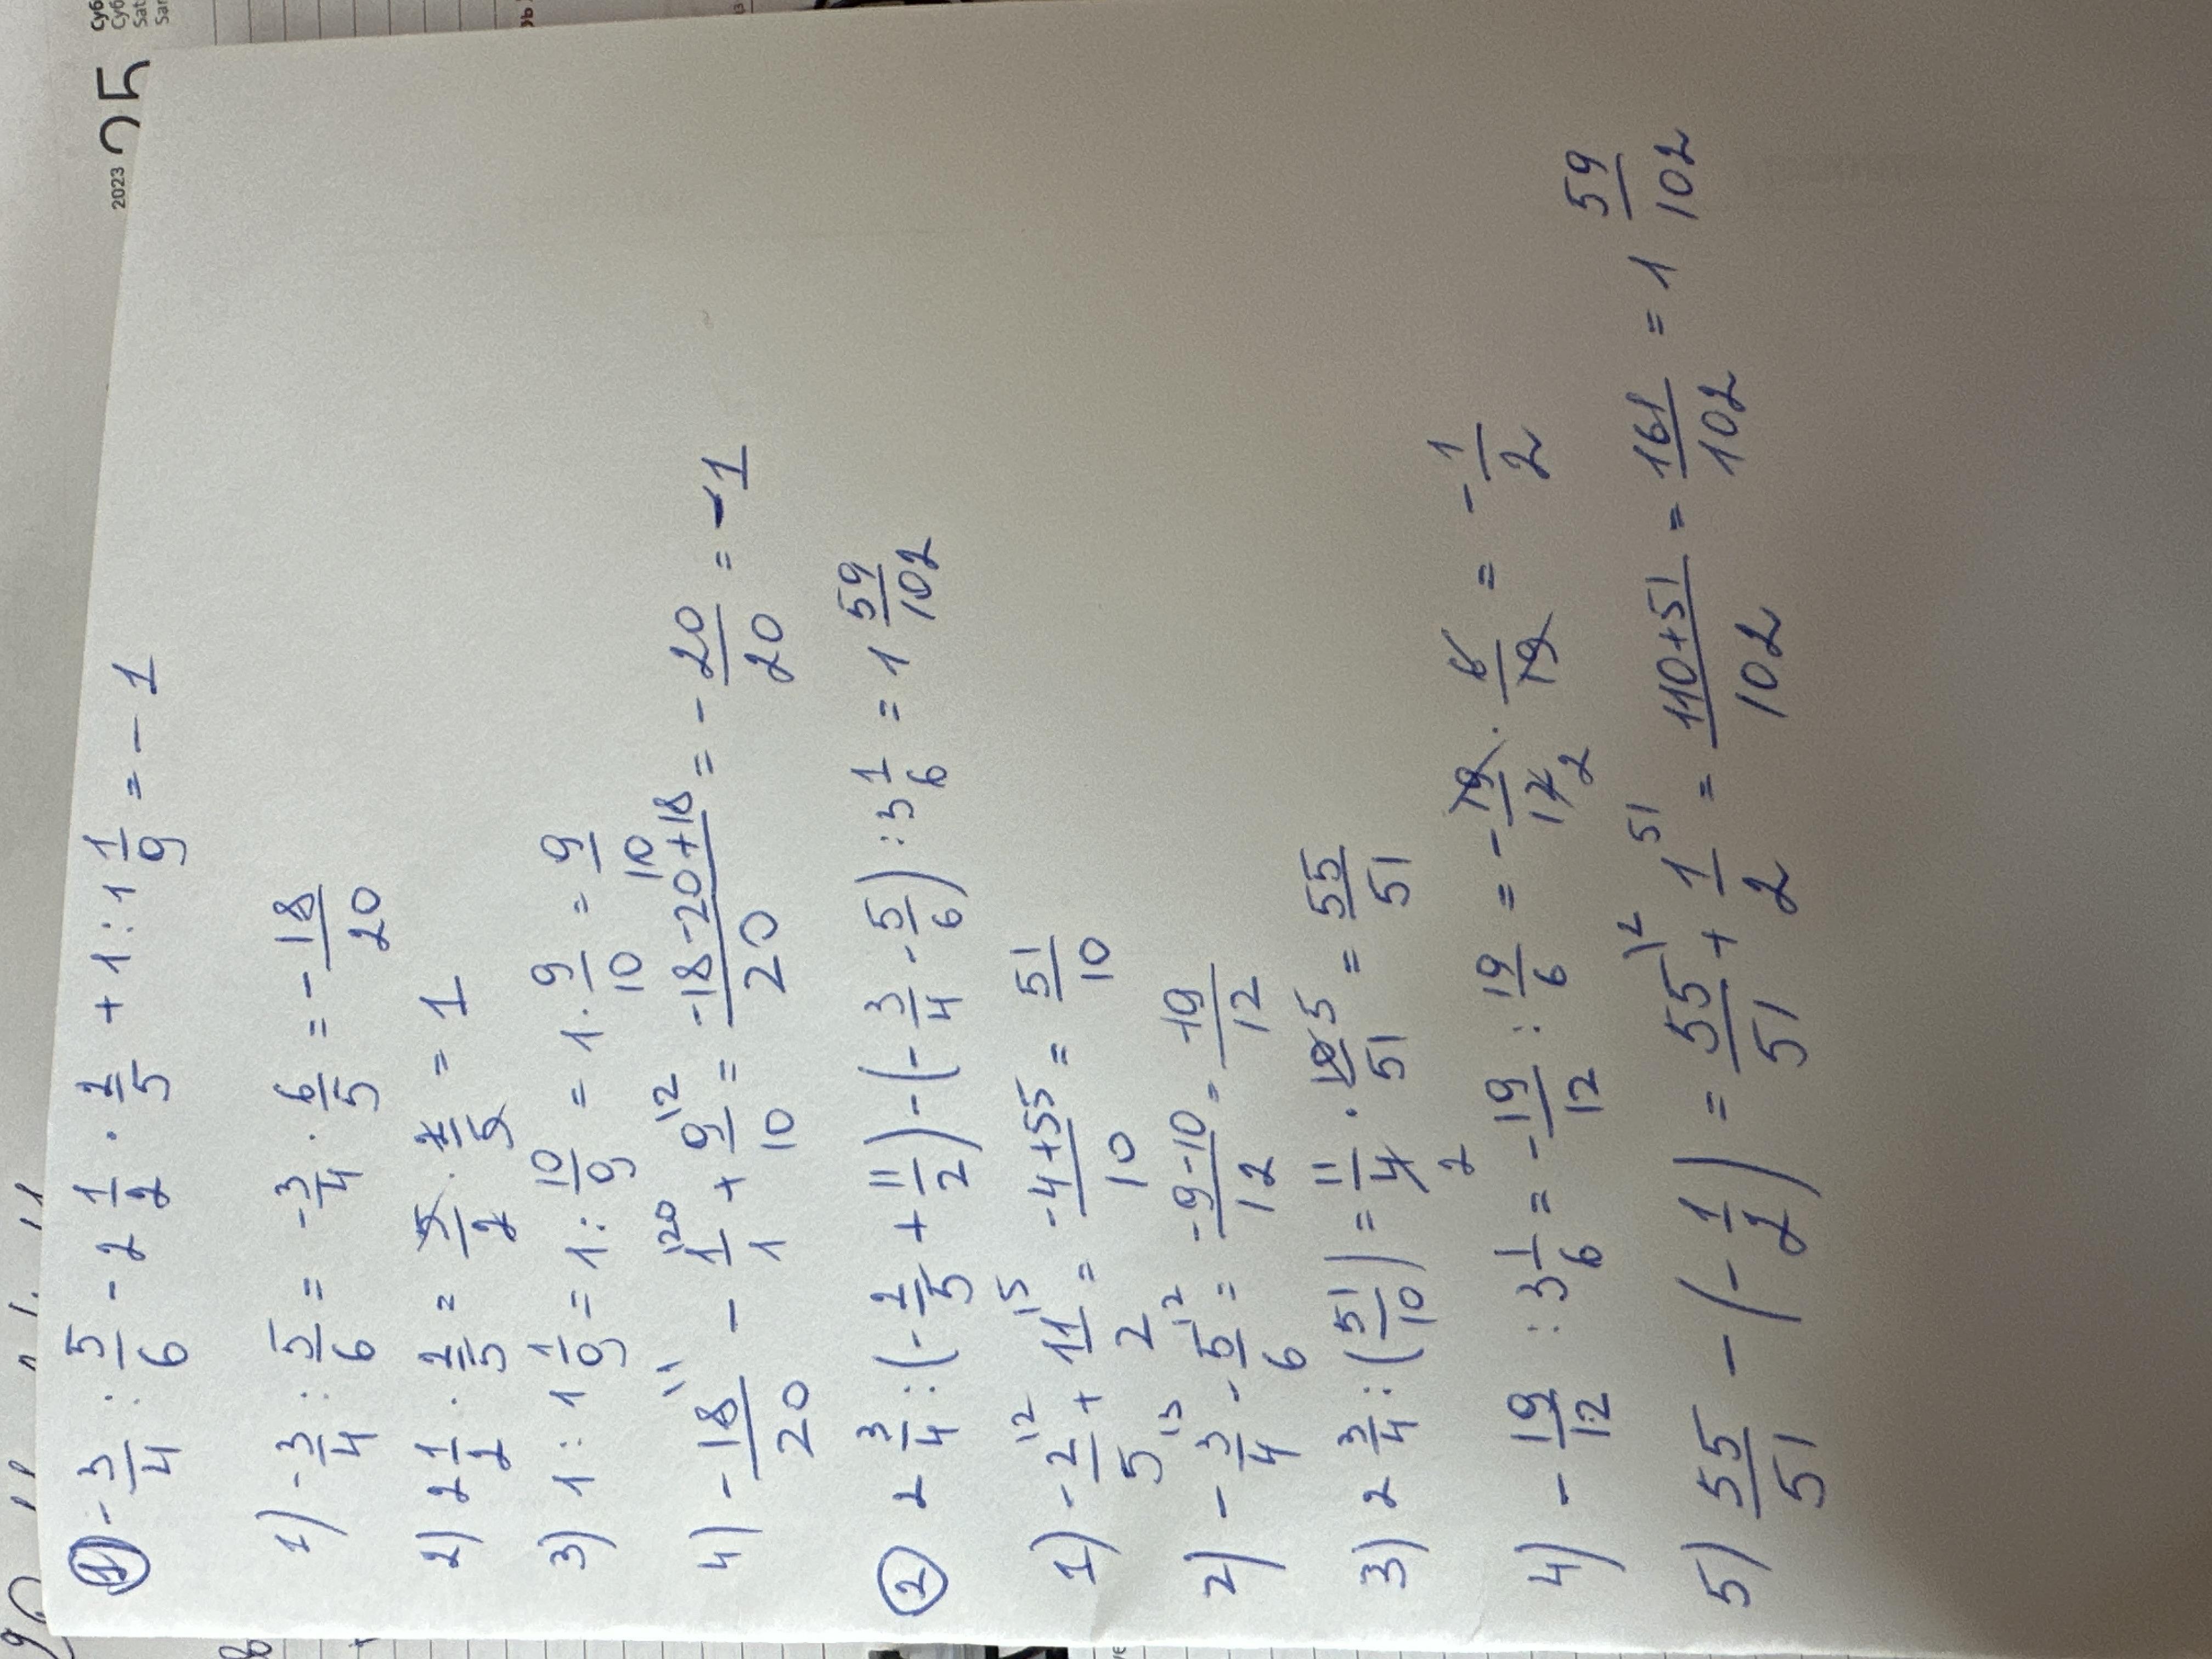 2023 25
① - 3/4 : 5/6 - 2 1/2 · 2/5 + 1 : 1 1/9 = - 1
1) - 3/4 : 5/6 = - 3/4 · 6/5 = - 18/20
2) 2 1/2 · 2/5 = 5/2 · 2/5 = 1
3) 1 : 1 1/9 = 1 : 10/9 = 1 · 9/10 = 9/10
4) - 18/20 |1 - 1/1 |20 + 9/10 |2 = -18-20+18/20 = - 20/20 = -1
② 2 3/4 : (- 2/5 + 11/2) - (- 3/4 - 5/6) : 3 1/6 = 1 59/102
1) - 2/5 |2 + 11/2 |5 = -4+55/10 = 51/10
2) - 3/4 |3 - 5/6 |2 = -9-10/12 = -19/12
3) 2 3/4 : (51/10) = 11/4 2 · 10 5/51 = 55/51
4) - 19/12 : 3 1/6 = - 19/12 : 19/6 = - 19/12 2 · 6/19 = - 1/2
5) 55/51 - (- 1/2) = 55/51 |2 + 1/2 |51 = 110+51/102 = 161/102 = 1 59/102